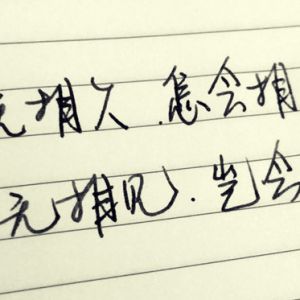 无相欠.怎会相
无相见.岂会